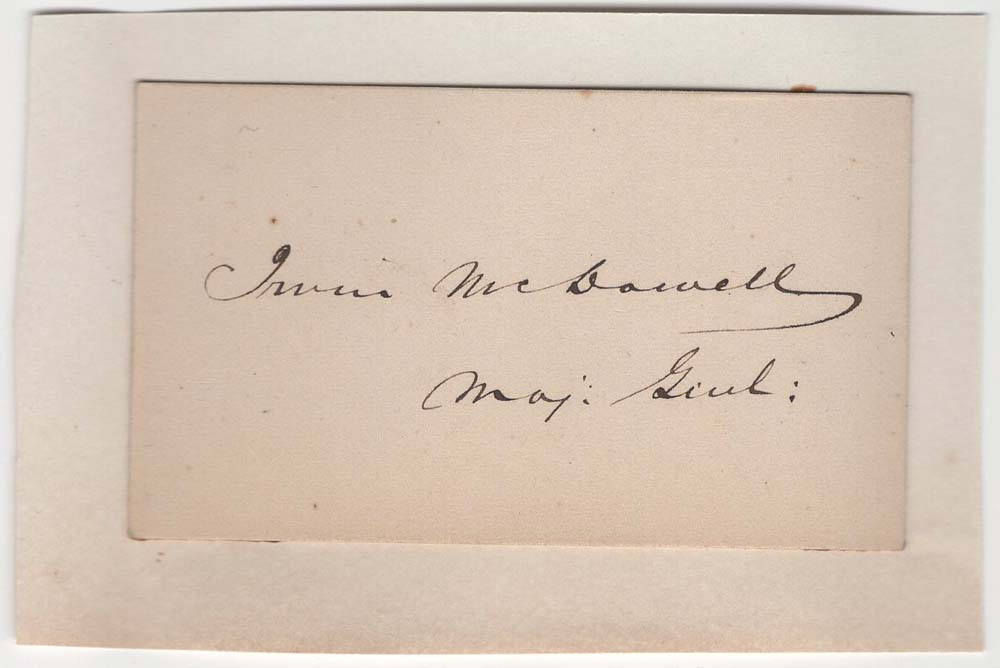 Irvin McDowell
Maj: Genl: